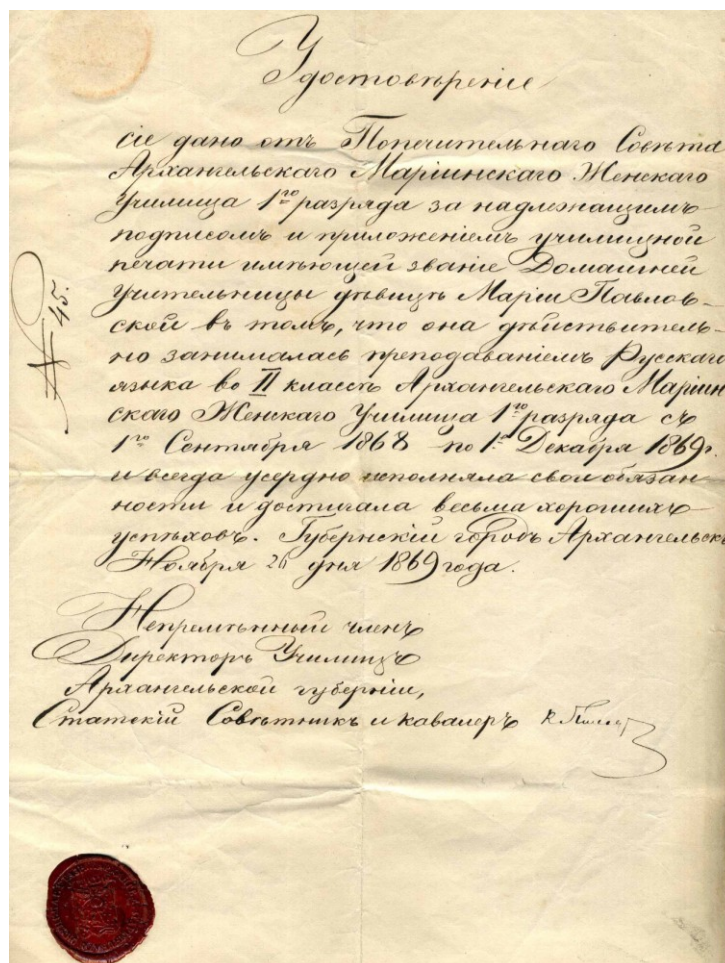 Удостовѣреніе
сіе дано отъ Попечительнаго Совѣта
Архангельскаго Маріинскаго Женскаго
Училища 1го разряда за надлежащимъ
подписомъ и приложеніемъ училищной
печати имѣющей званіе Домашней
Учительницы дѣвицѣ Маріи Павлов-
ской въ томъ, что она дѣйствитель-
но занималась преподаваніемъ Русскаго
языка во II классѣ Архангельскаго Маріин
скаго Женскаго Училища 1го разряда съ
1го Сентября 1868 по 1е Декабря 1869г.
и всегда усердно исполняла свои обязан
ности и достигала весьма хорошихъ
успѣховъ. Губернскій городъ Архангельскъ
Ноября 26 дня 1869 года.
№ 45.
Непремѣнный членъ
Директоръ Училищъ
Архангельской губерніи,
Статскій Совѣтникъ и кавалеръ